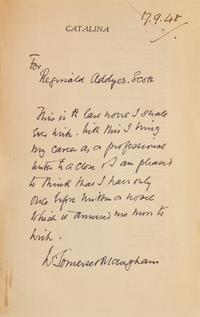 17.9.48
CATALINA
For
Reginald Addyes-Scott
This is the last novel I shall
ever write. With this I bring
my career as a professional
writer to a close. I am pleased
to think that I have only
once before written a novel
which it amused me more to
write.
W. Somerset Maugham